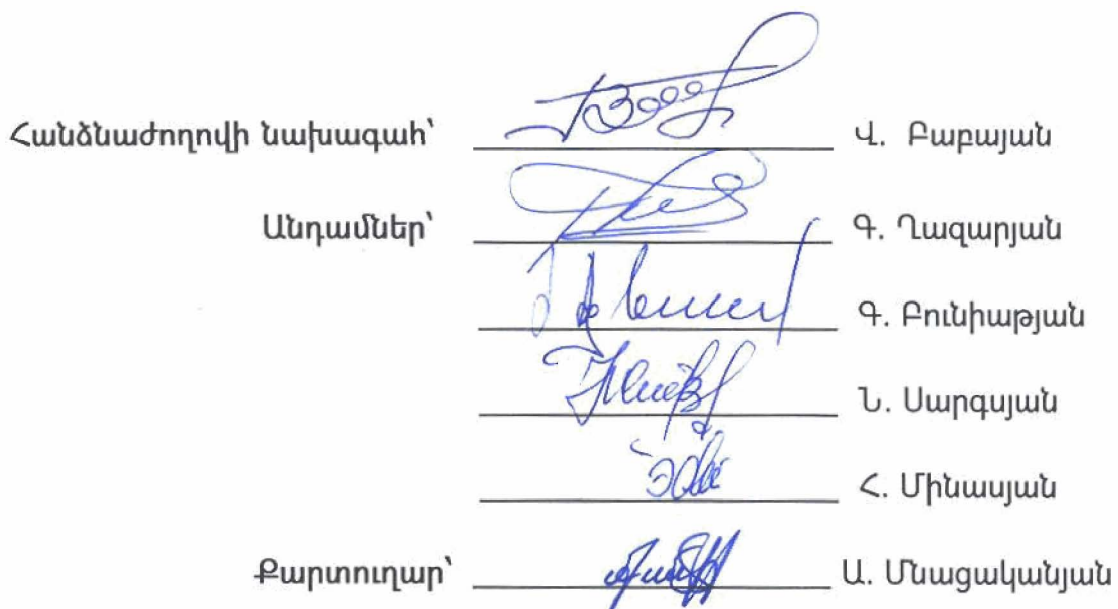 Հանձնաժողովի նախագահ՝ Վ. Բաբայան
Անդամներ՝ Գ. Ղազարյան
Գ. Բունիաթյան
Ն. Սարգսյան
Հ. Մինասյան
Քարտուղար՝ Ա. Մնացականյան